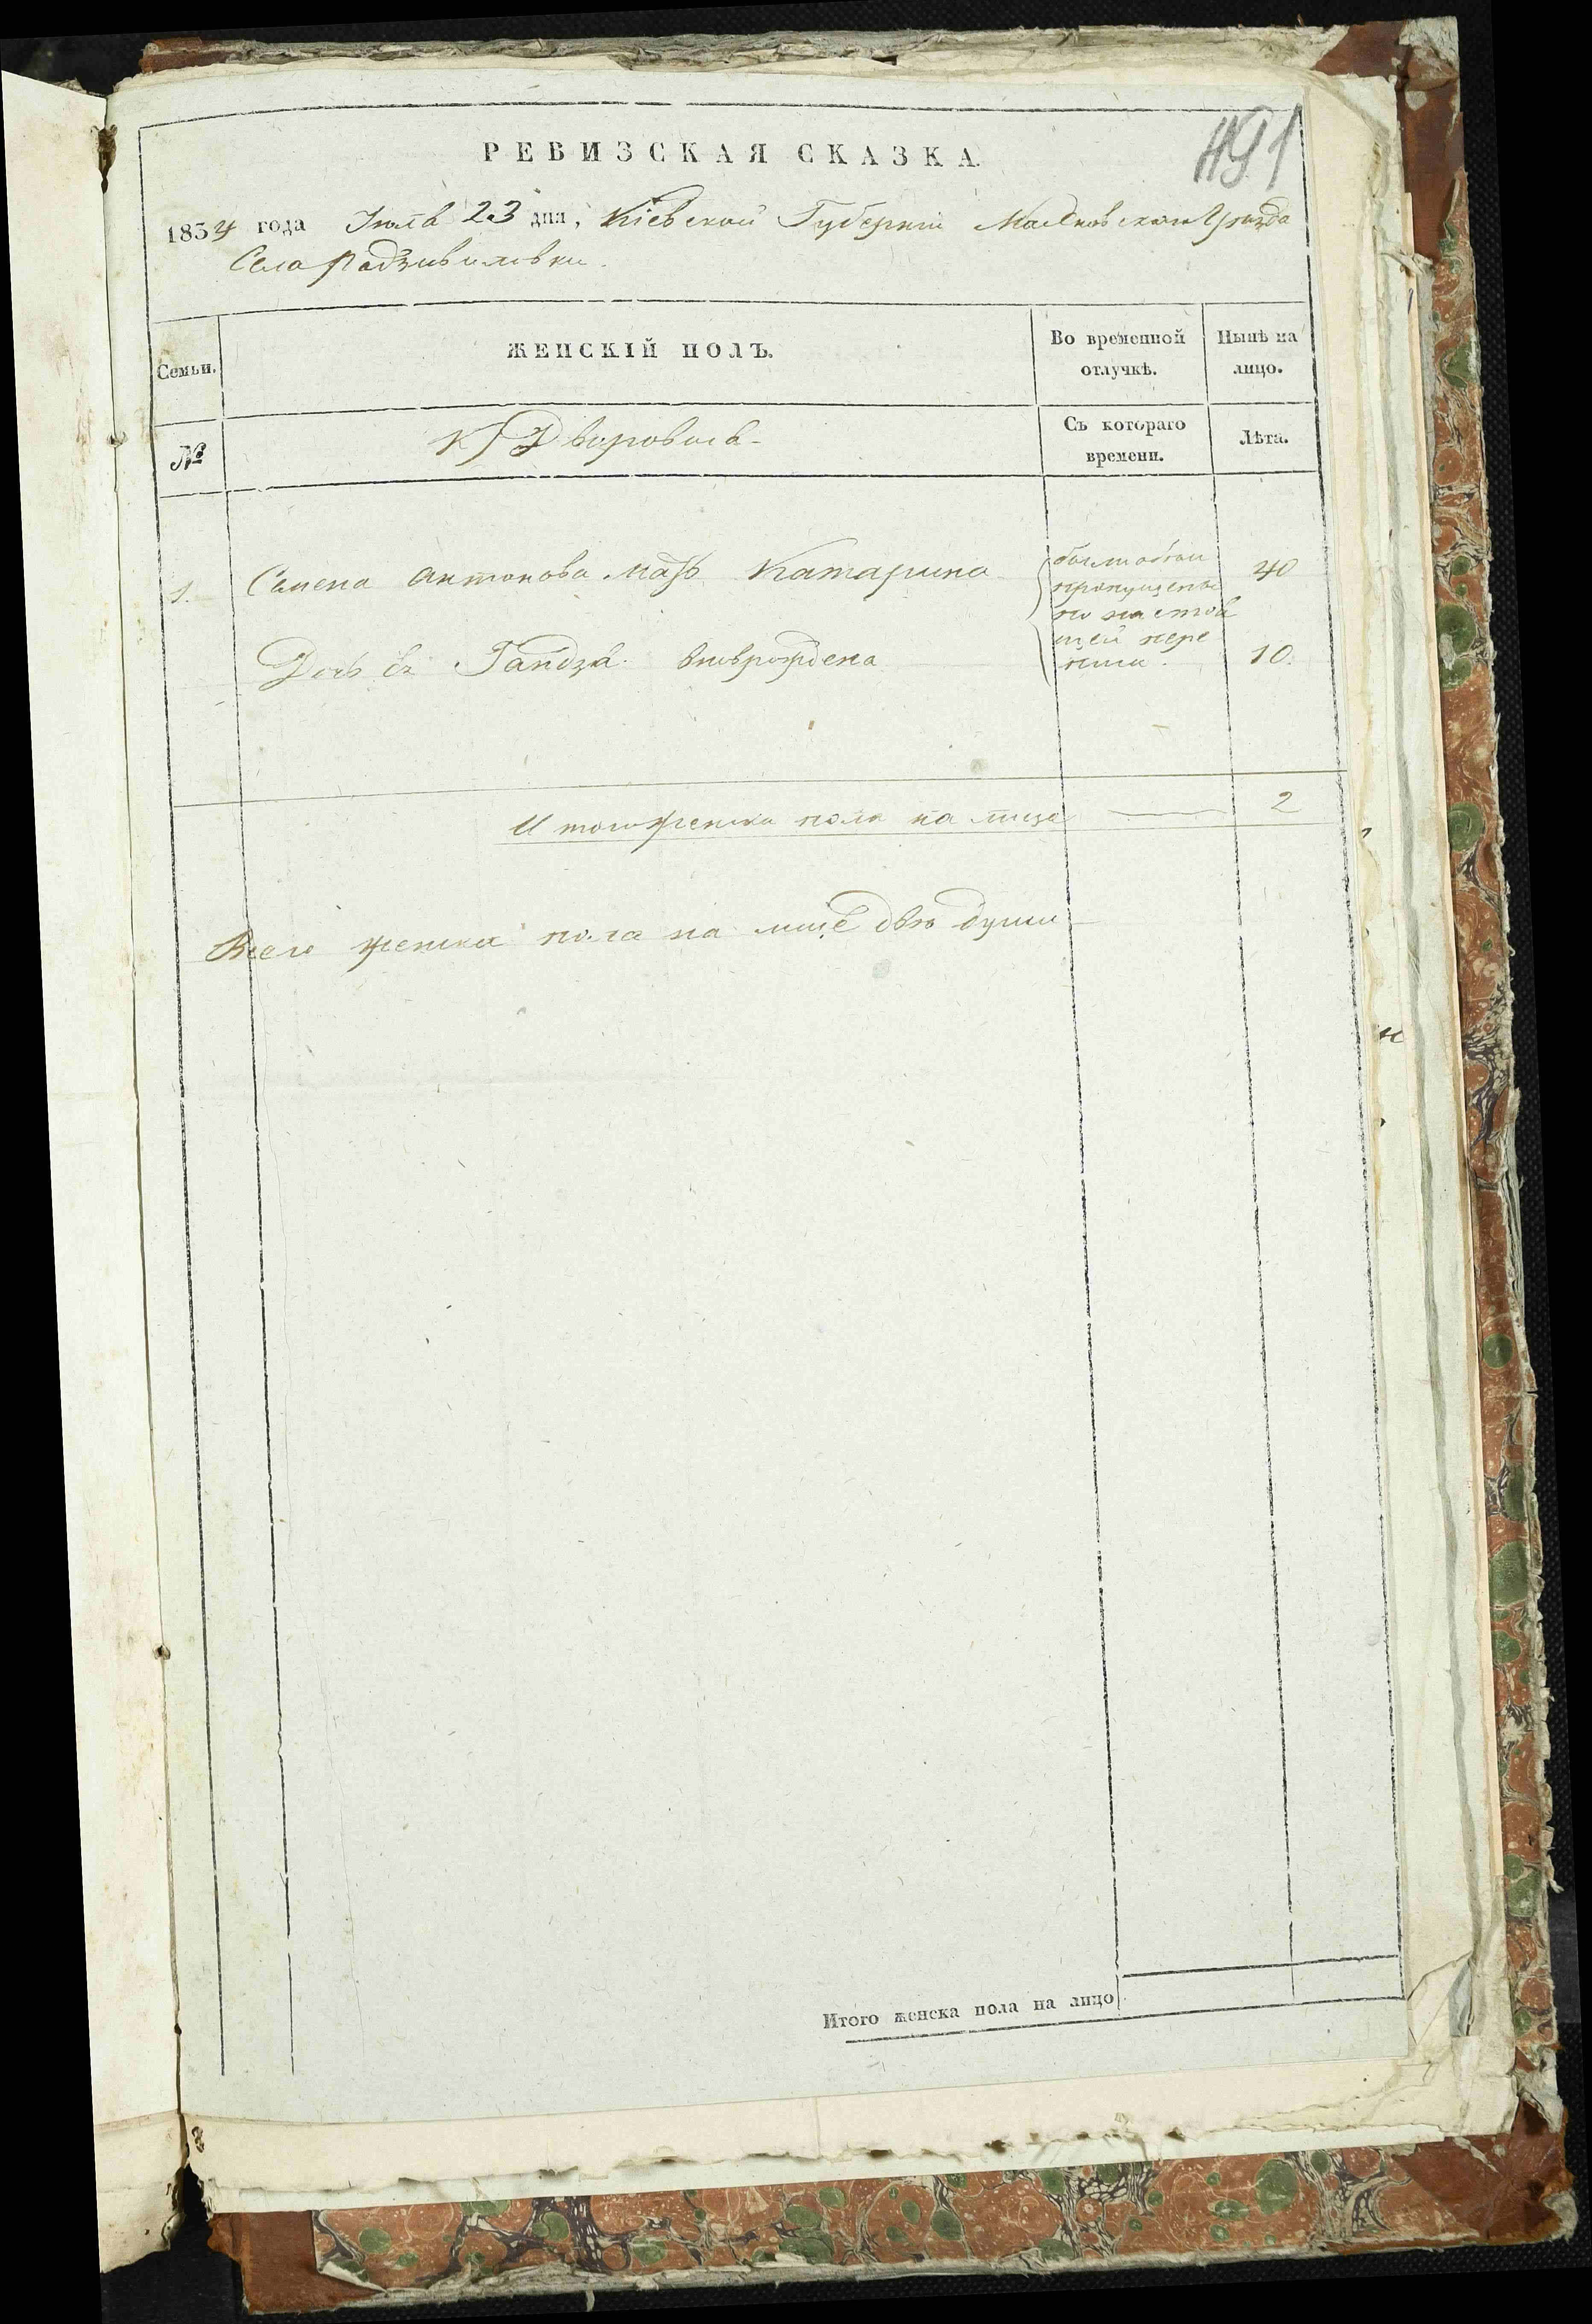 РЕВИЗСКАЯ СКАЗКА
491
1834 года Июля 23 дня, Кіевской Губерніи уѣзда
Села Радзивиловки.
Семьи.
ЖЕНСКІЙ ПОЛЪ.
Во временной отлучкѣ.
Нынѣ на лицо.
№
Дворовыя
Съ котораго времени.
Лѣта.
1. Семена Антонова мать Катарина 40
Дочь ея Гандзя вновьрождена 10.
пропущены
по настоя
щей пере
писи.
Итого женска пола на лице 2
Всего женска пола на лице двѣ души
Итого женска пола на лицо